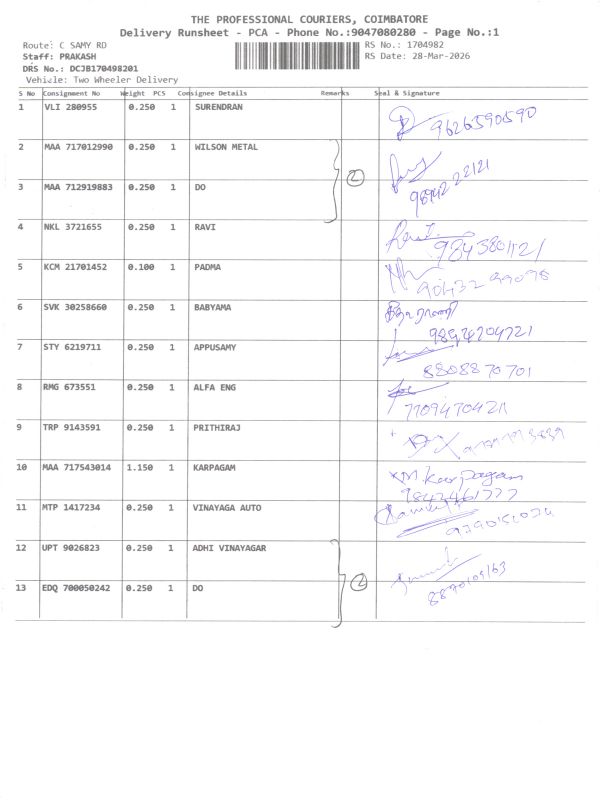 THE PROFESSIONAL COURIERS, COIMBATORE
Delivery Runsheet - PCA - Phone No.:9047080280 - Page No.:1
Route: C SAMY RD RS No.: 1704982
Staff: PRAKASH RS Date: 28-Mar-2026
DRS No.: DCJB170498201
Vehicle: Two Wheeler Delivery
S No Consignment No Weight PCS Consignee Details Remarks Seal & Signature
1 VLI 280955 0.250 1 SURENDRAN 9626590590
2 MAA 717012990 0.250 1 WILSON METAL
2
3 MAA 712919883 0.250 1 DO
4 NKL 3721655 0.250 1 RAVI
5 KCM 21701452 0.100 1 PADMA
6 SVK 30258660 0.250 1 BABYAMA
7 STY 6219711 0.250 1 APPUSAMY 8808870701
8 RMG 673551 0.250 1 ALFA ENG
9 TRP 9143591 0.250 1 PRITHIRAJ
10 MAA 717543014 1.150 1 KARPAGAM M. Karpagam
11 MTP 1417234 0.250 1 VINAYAGA AUTO
12 UPT 9026823 0.250 1 ADHI VINAYAGAR
2
13 EDQ 700050242 0.250 1 DO